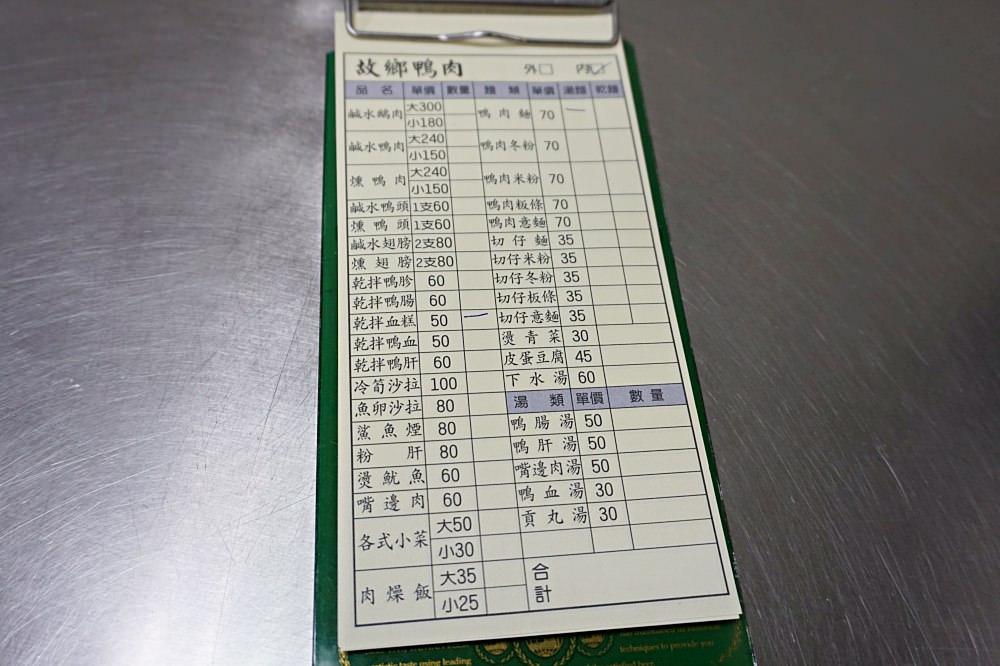 故鄉鴨肉 外□ 內☑
品名 單價 數量 麵類 單價 湯麵 乾麵
鹹水鵝肉 大300 小180 鴨肉麵 70 一
鹹水鴨肉 大240 小150 鴨肉冬粉 70
燻鴨肉 大240 小150 鴨肉米粉 70
鹹水鴨頭 1支60 鴨肉粄條 70
燻鴨頭 1支60 鴨肉意麵 70
鹹水翅膀 2支80 切仔麵 35
燻翅膀 2支80 切仔米粉 35
乾拌鴨胗 60 切仔冬粉 35
乾拌鴨腸 60 切仔板條 35
乾拌血糕 50 一 切仔意麵 35
乾拌鴨血 50 燙青菜 30
乾拌鴨肝 60 皮蛋豆腐 45
冷筍沙拉 100 下水湯 60
魚卵沙拉 80 湯類 單價 數量
鯊魚煙 80 鴨腸湯 50
粉肝 80 鴨肝湯 50
燙魷魚 60 嘴邊肉湯 50
嘴邊肉 60 鴨血湯 30
各式小菜 大50 小30 貢丸湯 30
肉燥飯 大35 小25 合計
techniques to provide you
taste using leading